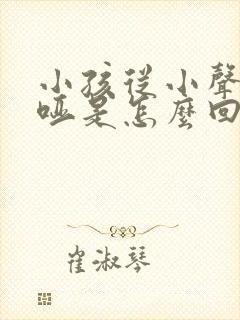 小孩從小聲
啞是怎麼回
崔淑琴